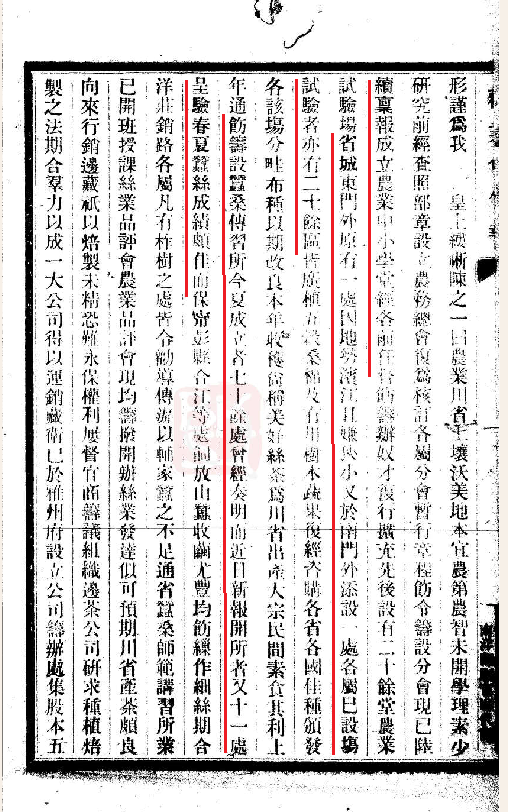 形謹爲我 皇上縷晰陳之一曰農業川省土壤沃美地本宜農第農智未開學理素少
研究前經查照部章設立農務總會復爲核訂各屬分會暫行章程飭令籌設分會現已陸
續稟報成立農業中小學堂經各前任督飭籌辦奴才復行擴充先後設有二十餘堂農業
試驗場省城東門外原有一處因地勢濱江且嫌狹小又於南門外添設 處各屬已設塲
試驗者亦有二十餘區皆廣植五穀桑棉及有用樹木蔬果復經咨購各省各國佳種頒發
各該塲分畦布種以期改良本年收穫尙稱美好絲茶爲川省出產大宗民間素食其利上
年通飭籌設蠶桑傳習所今夏成立者七十餘處曾經奏明而近日新報開所者又十一處
呈驗春夏蠶絲成績頗佳而保甯彭縣合江等處飼放山蠶收繭尤豐均飭繰作細絲期合
洋莊銷路各屬凡有柞樹之處皆令勸導傳游以輔家蠶之不足通省蠶桑師範講習所業
已開班授課絲業品評會農業品評會現均籌撥開辦絲業發達似可預期川省產茶頗良
向來行銷邊藏祇以焙製未精恐難永保權利屢督官商籌議組織邊茶公司研求種植焙
製之法期合羣力以成一大公司得以運銷藏衛已於雅州府設立公司籌辦處集股本五